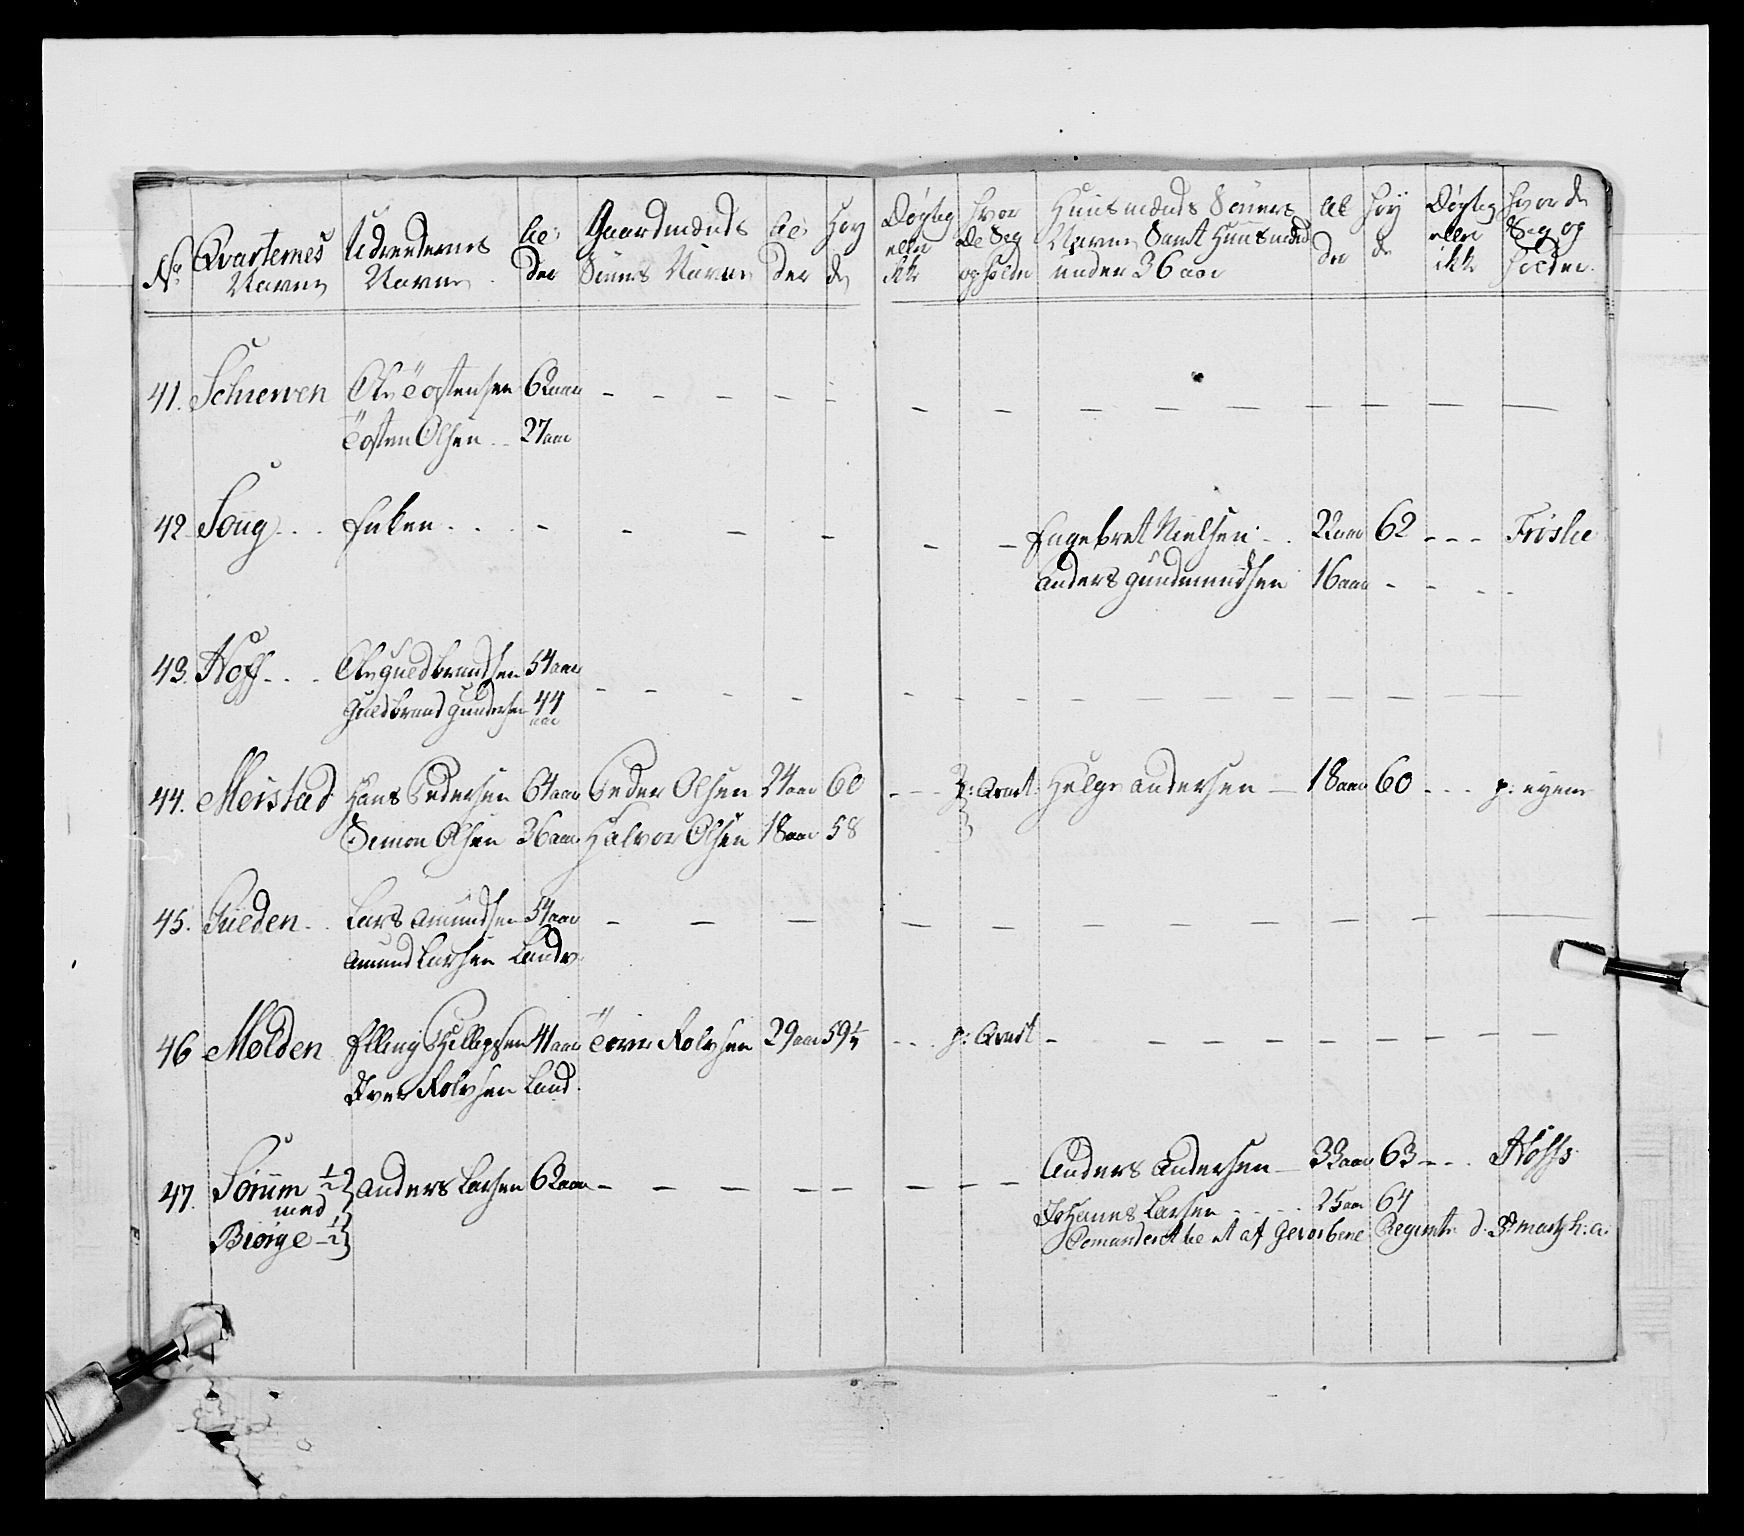 No. Qvarternes Navne | Udreedernes Navne | Al der | Gaardmænds Sönners Navne | Al der | Höy de | Dögtig eller ikke | Hvor De Seg opholde | Huusmænds Sönners Navne Samt Huusmænd under 36 aar | Al der | Höy de | Dögtig eller ikke | Hvor de Seg op holder
41. Schierven Ole Tostensen 62 aar - - - - - - - - - - - - -
Tosten Olsen .. 27 aar
42. Soug . . . Enken . . . - - - - - - - Engebret Nielsen . . 22 aar 62 - - - Frislie
Anders Gundmundsen 16 aar - - - -
43. Hoff . . . Ole Guldbrandsen 54 aar
Guldbrand Gundersen 44 aar - - - - - - - - - - - -
44. Meistad Hans Pedersen 64 aar Peder Olsen 24 aar 60 - - - p: Qvart: Helge Andersen - 18 aar 60 - - - p: eyem
Simon Olsen 36 aar Halvor Olsen 18 aar 58
45. Tueden . . Lars Amundsen 54 aar - - - - - - - - - - -
Amund Larsen Landv:
46 Molden Elling Phillipsen 41 aar Iver Rolvsen 29 aar 59½ - - - p: Qvart - - - - - - - - -
Iver Rolvsen Land:
47. Sörum ½ Anders Larsen 62 aar - - - - - - - - Anders Andersen - 33 aar 63 - - - Hoffs
med
Biörge - ½ Johannes Larsen - - - - 25 aar 64
Comanderet be at af Gevorbene Regimtr: d: 3 Martz h: a: